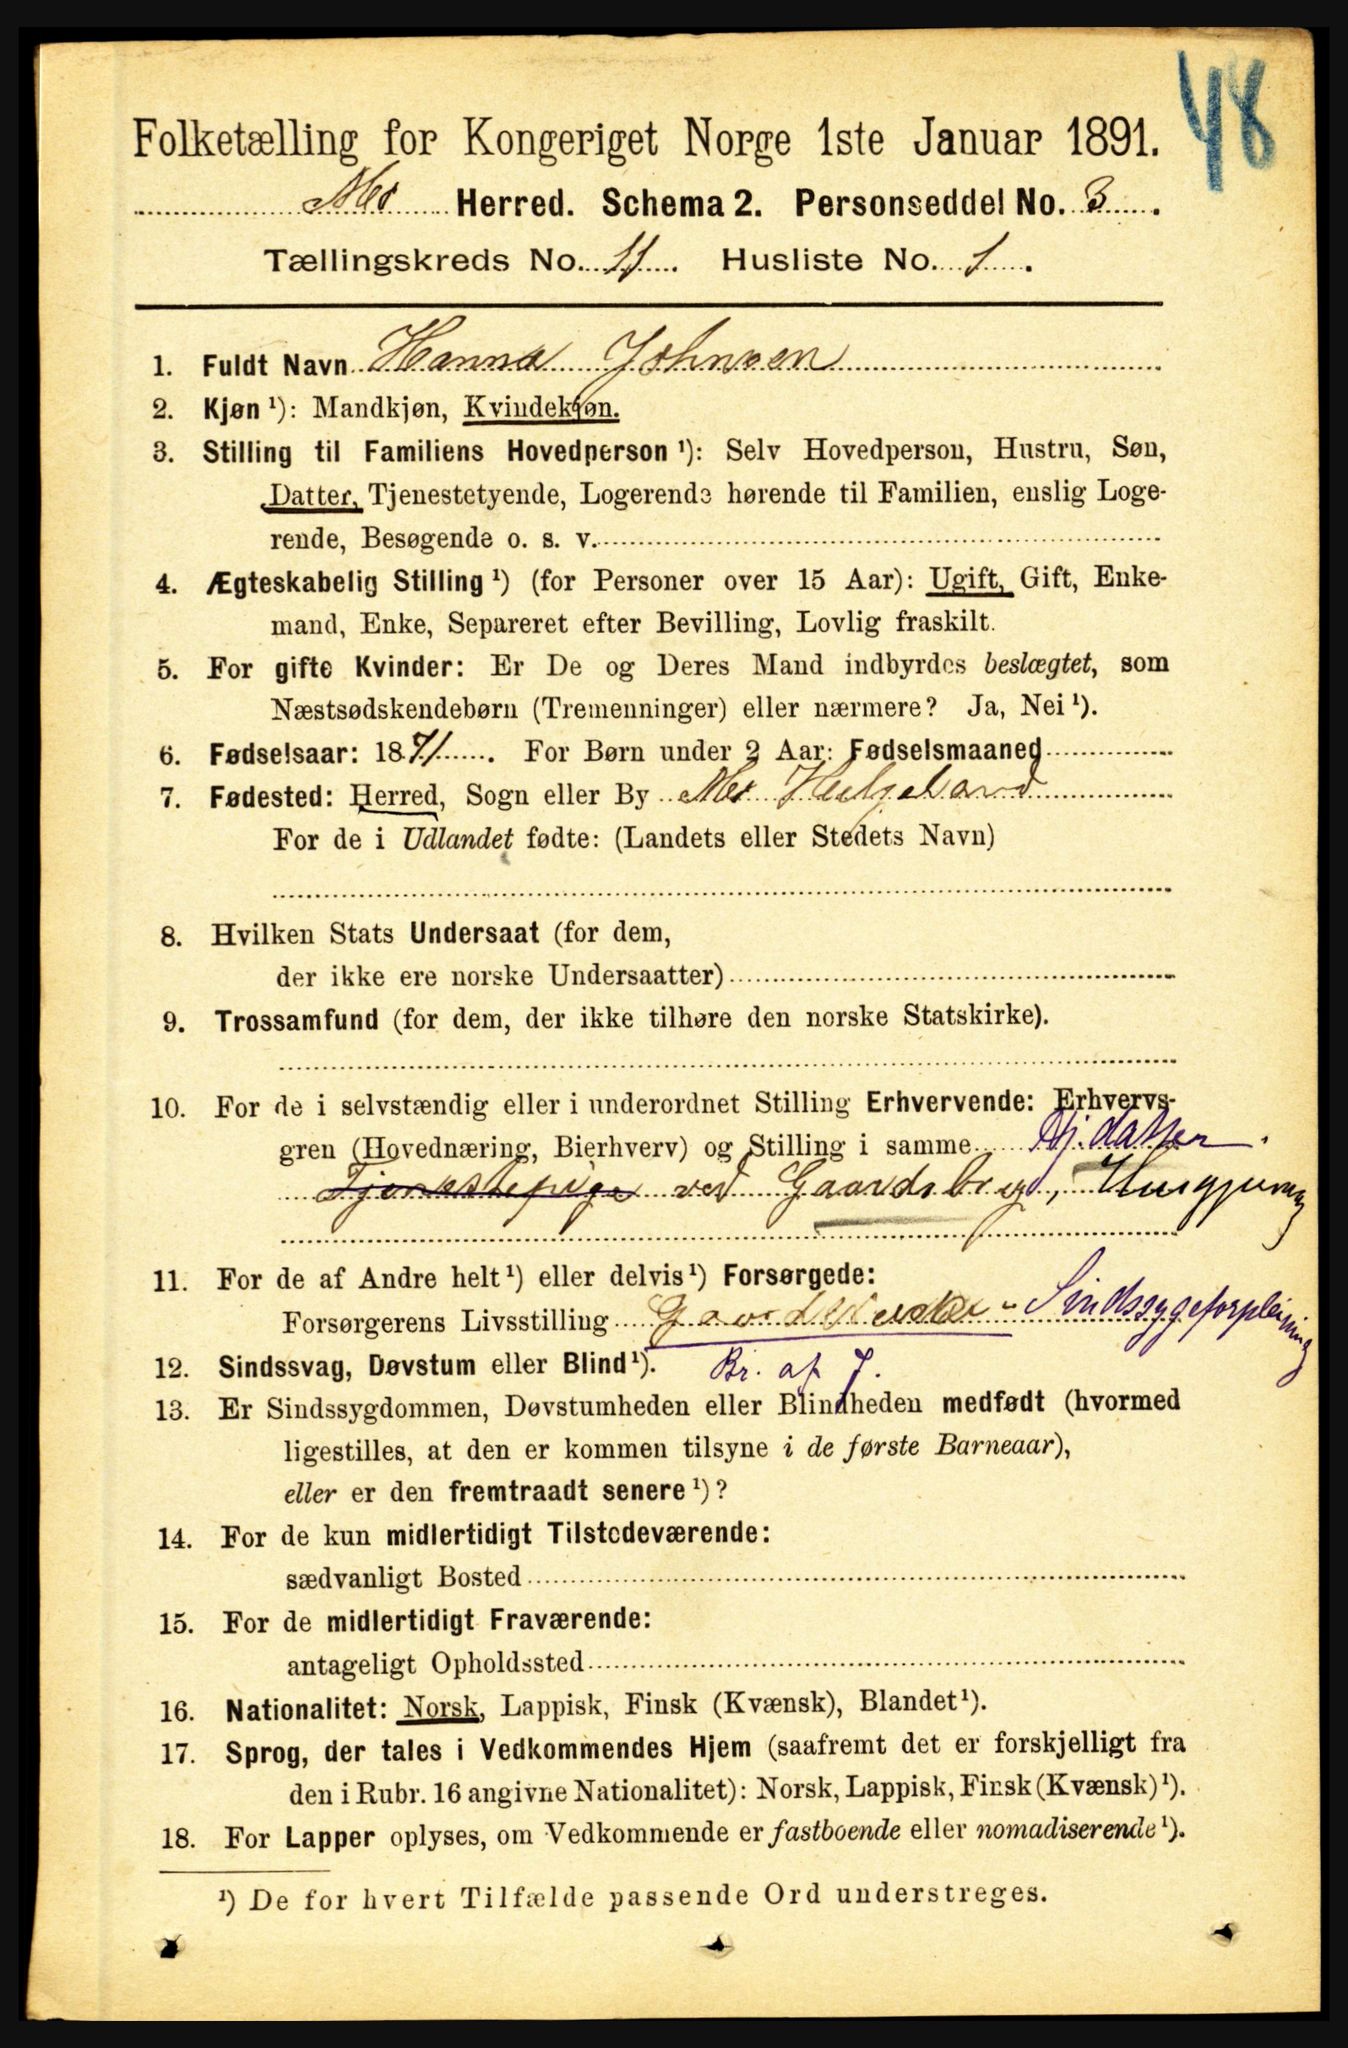 48
Folketælling for Kongeriget Norge 1ste Januar 1891.
Mo Herred. Schema 2. Personseddel No. 3.
Tællingskreds No. 11. Husliste No. 1.
1. Fuldt Navn Hanna Johnsen
2. Kjøn ¹): Mandkjøn, Kvindekjøn.
3. Stilling til Familiens Hovedperson ¹): Selv Hovedperson, Hustru, Søn,
Datter, Tjenestetyende, Logerende hørende til Familien, enslig Loge-
rende, Besøgende o. s. v.
4. Ægteskabelig Stilling ¹) (for Personer over 15 Aar): Ugift, Gift, Enke-
mand, Enke, Separeret efter Bevilling, Lovlig fraskilt.
5. For gifte Kvinder: Er De og Deres Mand indbyrdes beslægtet, som
Næstsødskendebørn (Tremenninger) eller nærmere? Ja, Nei ¹).
6. Fødselsaar: 1871. For Børn under 2 Aar: Fødselsmaaned
7. Fødested: Herred, Sogn eller By Mo Helgeland
For de i Udlandet fødte: (Landets eller Stedets Navn)
8. Hvilken Stats Undersaat (for dem,
der ikke ere norske Undersaatter)
9. Trossamfund (for dem, der ikke tilhøre den norske Statskirke).
10. For de i selvstændig eller i underordnet Stilling Erhvervende: Erhvervs-
gren (Hovednæring, Bierhverv) og Stilling i samme Hj. datter.
Tjenestepige ved Gaardsbrug, Husgjerning
11. For de af Andre helt ¹) eller delvis ¹) Forsørgede:
Forsørgerens Livsstilling Gaardbruker - Sindssygeforpleining
12. Sindssvag, Døvstum eller Blind ¹). Br. af J.
13. Er Sindssygdommen, Døvstumheden eller Blindheden medfødt (hvormed
ligestilles, at den er kommen tilsyne i de første Barneaar),
eller er den fremtraadt senere ¹)?
14. For de kun midlertidigt Tilstedeværende:
sædvanligt Bosted
15. For de midlertidigt Fraværende:
antageligt Opholdssted
16. Nationalitet: Norsk, Lappisk, Finsk (Kvænsk), Blandet ¹).
17. Sprog, der tales i Vedkommendes Hjem (saafremt det er forskjelligt fra
den i Rubr. 16 angivne Nationalitet): Norsk, Lappisk, Finsk (Kvænsk) ¹).
18. For Lapper oplyses, om Vedkommende er fastboende eller nomadiserende ¹).
¹) De for hvert Tilfælde passende Ord understreges.